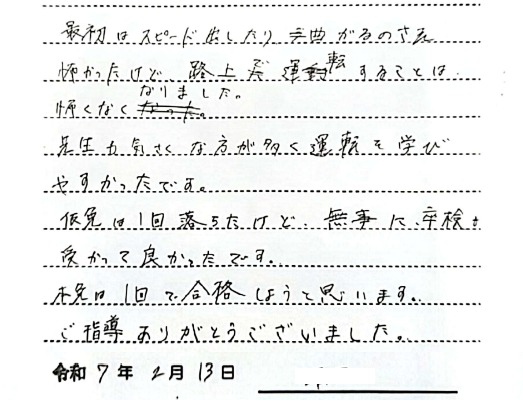 最初はスピード出したり、曲がるのさえ
怖かったけど、路上だと運転することは
怖くなくなりました。
先生も気さくな方が多く運転を学び
やすかったです。
仮免は1回落ちたけど、無事に、卒検も
受かって良かったです。
本免は1回で合格しようと思います。
ご指導ありがとうございました。
令和7年2月13日